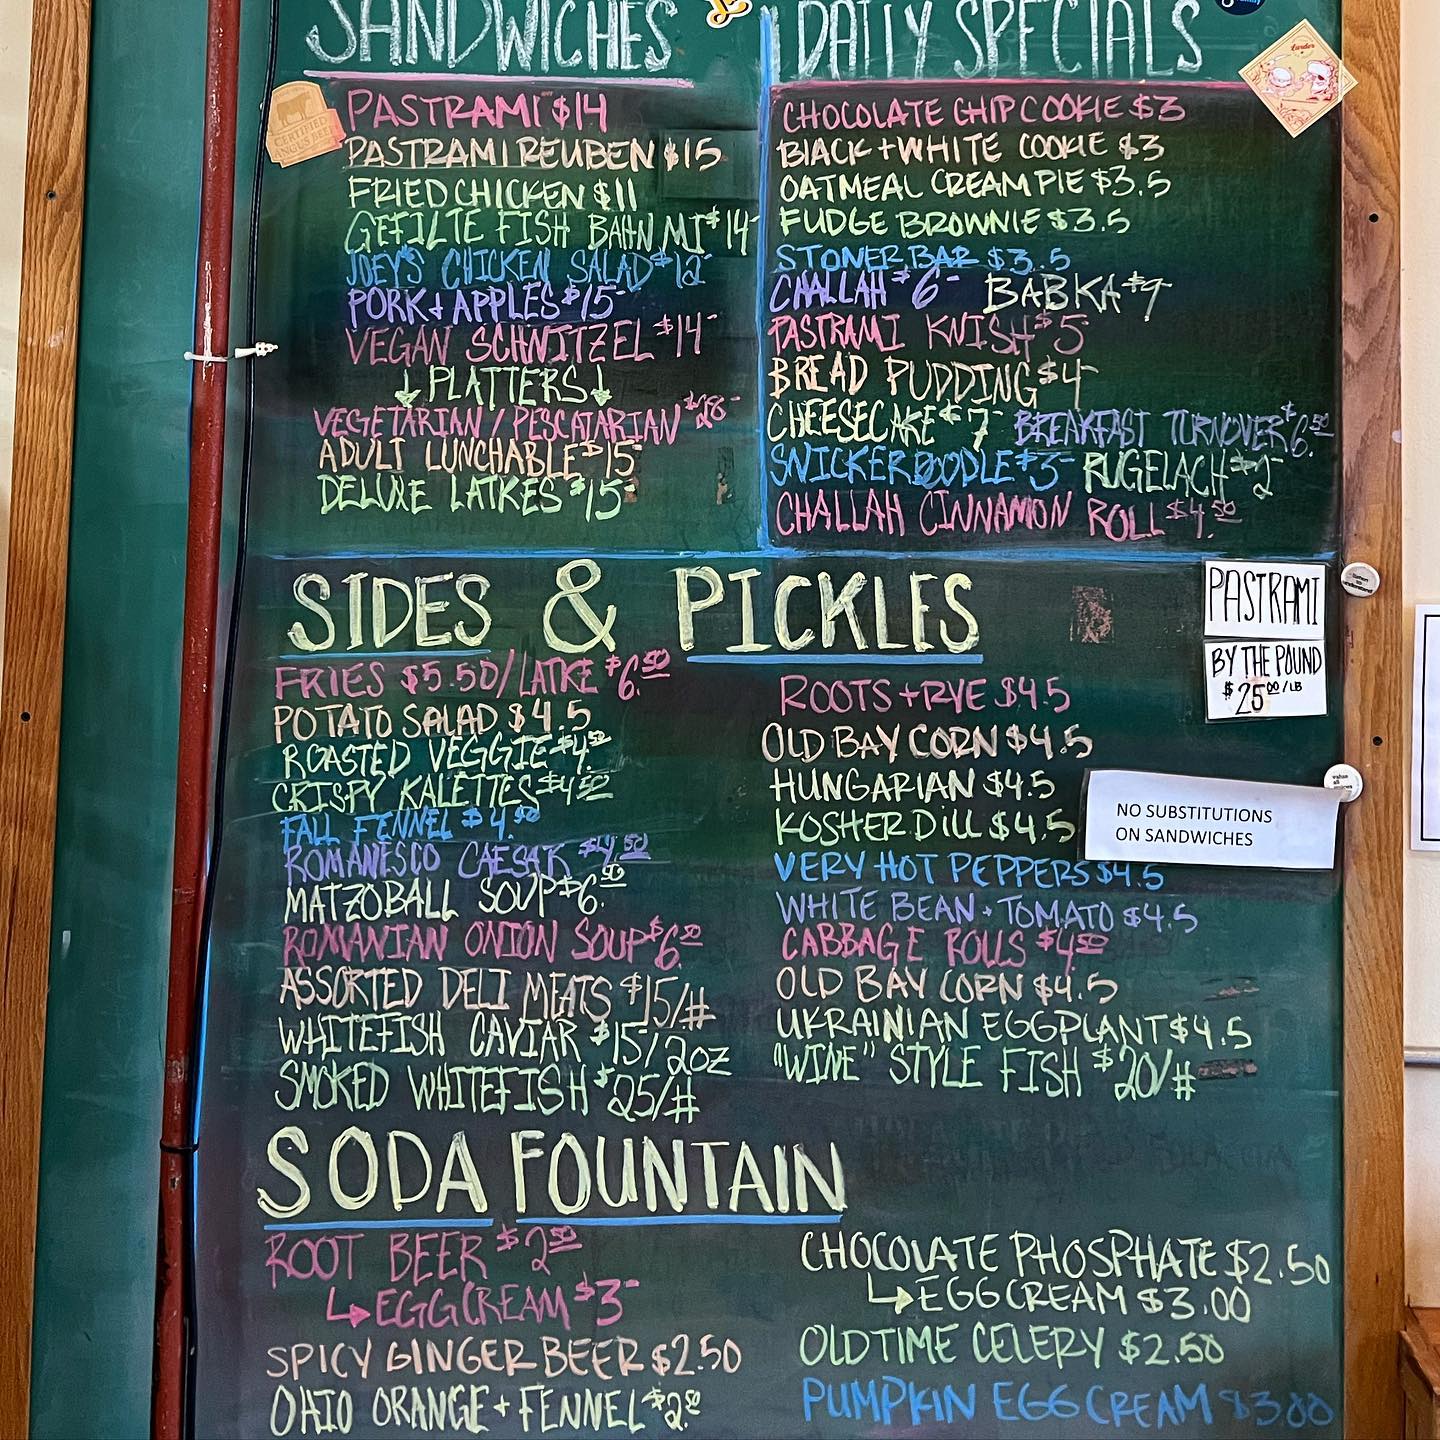 SANDWICHES
PASTRAMI $14
PASTRAMI REUBEN $15
FRIED CHICKEN $11
GEFILTE FISH BAHN MI $14-
JOEY'S CHICKEN SALAD $12-
PORK + APPLES $15-
VEGAN SCHNITZEL $14-
↓ PLATTERS ↓
VEGETARIAN / PESCATARIAN $28-
ADULT LUNCHABLE $15-
DELUXE LATKES $15-
DAILY SPECIALS
CHOCOLATE CHIP COOKIE $3
BLACK + WHITE COOKIE $3
OATMEAL CREAM PIE $3.5
FUDGE BROWNIE $3.5
STONER BAR $3.5
CHALLAH $6- BABKA $9-
PASTRAMI KNISH $5-
BREAD PUDDING $4-
CHEESECAKE $7- BREAKFAST TURNOVER $6.50
SNICKERDOODLE $3- RUGELACH $2-
CHALLAH CINNAMON ROLL $4.50
CERTIFIED
ANGUS BEEF
Larder
SIDES & PICKLES
FRIES $5.50 / LATKE $6.50
POTATO SALAD $4.5
ROASTED VEGGIE $4.50
CRISPY KALETTES $4.50
FALL FENNEL $4.50
ROMANESCO CAESAR $4.50
MATZOBALL SOUP $6.50
ROMANIAN ONION SOUP $6.50
ASSORTED DELI MEATS $15/#
WHITEFISH CAVIAR $15/2oz
SMOKED WHITEFISH $25/#
ROOTS + RYE $4.5
OLD BAY CORN $4.5
HUNGARIAN $4.5
KOSHER DILL $4.5
VERY HOT PEPPERS $4.5
WHITE BEAN + TOMATO $4.5
CABBAGE ROLLS $4.50
OLD BAY CORN $4.5
UKRAINIAN EGGPLANT $4.5
"WINE" STYLE FISH $20/#
PASTRAMI
BY THE POUND
$25.00/LB
NO SUBSTITUTIONS
ON SANDWICHES
SODA FOUNTAIN
ROOT BEER $2.50
↳ EGGCREAM $3-
SPICY GINGER BEER $2.50
OHIO ORANGE + FENNEL $2.50
CHOCOLATE PHOSPHATE $2.50
↳ EGG CREAM $3.00
OLDTIME CELERY $2.50
PUMPKIN EGG CREAM $3.00